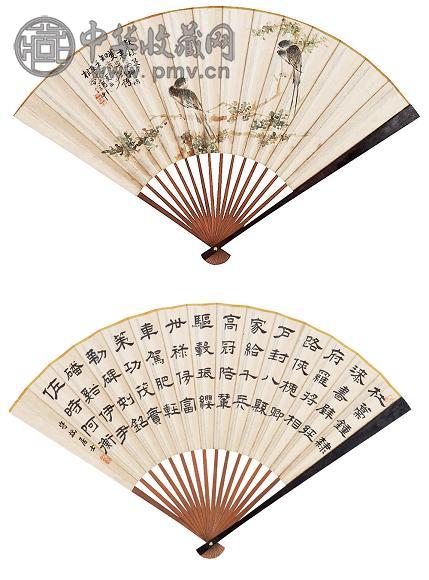 中华收藏网
www.pmv.cn
杜稾鍾隸
漆書壁經
府羅將相
路俠槐卿
戶封八縣
家給千兵
高冠陪輦
驅轂振纓
世祿侈富
車駕肥輕
策功茂實
勒碑刻銘
磻谿伊尹
佐時阿衡